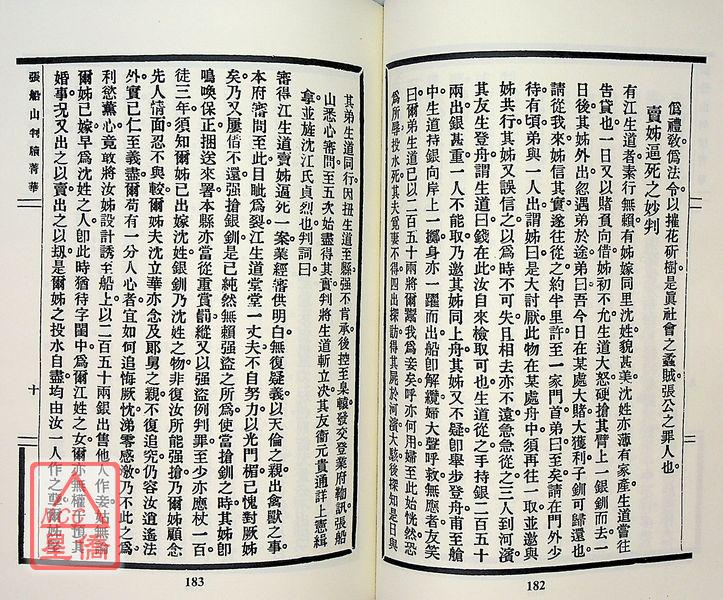 爲禮敎爲法令以摧花斫樹是眞社會之蟊賊張公之罪人也。
賣姊逼死之妙判
有江生道者素行無賴有姊嫁同里沈姓貌甚美沈姓亦薄有家產生道嘗往
告貸也一日又以賭負向借姊初不允生道大怒硬搶其臂上一銀釧而去一
日後其姊外出忽遇弟於途弟曰吾今日在某處大賭大獲利子釧可歸還也
請從我來姊信其實遂往從之約半里許至一家門首弟曰至矣請在門外少
待有頃弟與一人出謂姊曰是大討厭此物在某處舟中須再往一取並邀與
姊共行其姊又誤信之以爲時不可失且相去亦不遠急急從之三人到河濱
其友生登舟謂生道曰錢在此汝自來檢取可也生道從之手持銀二百五十
兩出銀甚重一人不能取乃邀其姊同上舟其姊又不疑卽舉步登舟甫至艙
中生道持銀向岸上一擲身亦一躍而出船卽解纜婦大聲呼救無應者友笑
曰爾弟生道已以二百五十兩將爾鬻我爲妾矣呼亦何用婦至此始恍然恐
爲所辱投水死其夫覓妻不得四出探訪得其屍於河濱大駭後探知是日與
182
其弟生道同行因扭生道至縣强不肯承後控至臬轅發交登萊府鞫訊張船
山悉心審問至五次始盡得其實判將生道斬立决其友衞元貴通詳上憲緝
拿並旌沈江氏貞烈也判詞曰
審得江生道賣姊逼死一案業經審供明白無復疑義以天倫之親出禽獸之事
本府審問至此目眦爲裂江生道堂堂一丈夫不自努力以光門楣已愧對厥姊
矣乃又屢借不還强搶銀釧是已純然無賴强盜之所爲使當搶釧之時其姊卽
鳴喚保正捆送來署本縣亦當從重責罰縱又以强盜例判罪至少亦應杖一百
徒三年須知爾姊已出嫁沈姓銀釧乃沈姓之物非復汝所能强搶乃爾姊顧念
先人情面忍不與較爾姊夫沈立華亦念及郞舅之親不復追究仍容汝逍遙法
外實已仁至義盡爾苟有一分人心者宜如何追悔厥忱涕零感激乃不此之爲
利慾薰心竟敢將汝姊設計誘至船上以二百五十兩銀出售他人作妾姑無論
爾姊已嫁早爲沈姓之人卽此時猶待字閨中爲爾江姓之女爾亦無權干預其
婚事况又出之以賣出之以刼是爾姊之投水自盡均由汝一人作之孽爾姊
張船山判牘菁華
十
183